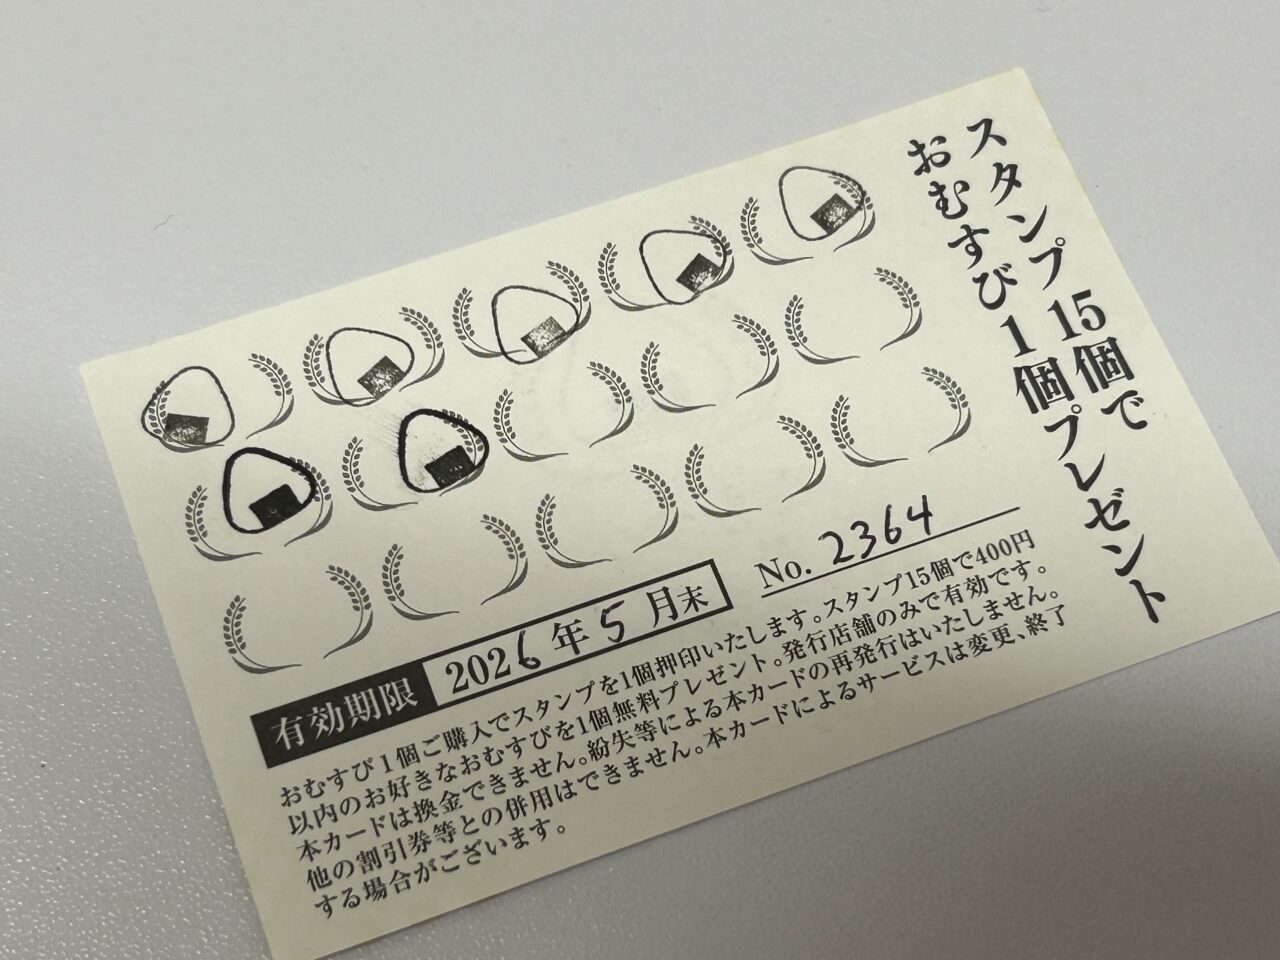 スタンプ15個で
おむすび1個プレゼント
No. 2364
有効期限 2026年5月末
おむすび1個ご購入でスタンプを1個押印いたします。スタンプ15個で400円
以内のお好きなおむすびを1個無料プレゼント。発行店舗のみで有効です。
本カードは換金できません。紛失等による本カードの再発行はいたしません。
他の割引券等との併用はできません。本カードによるサービスは変更、終了
する場合がございます。